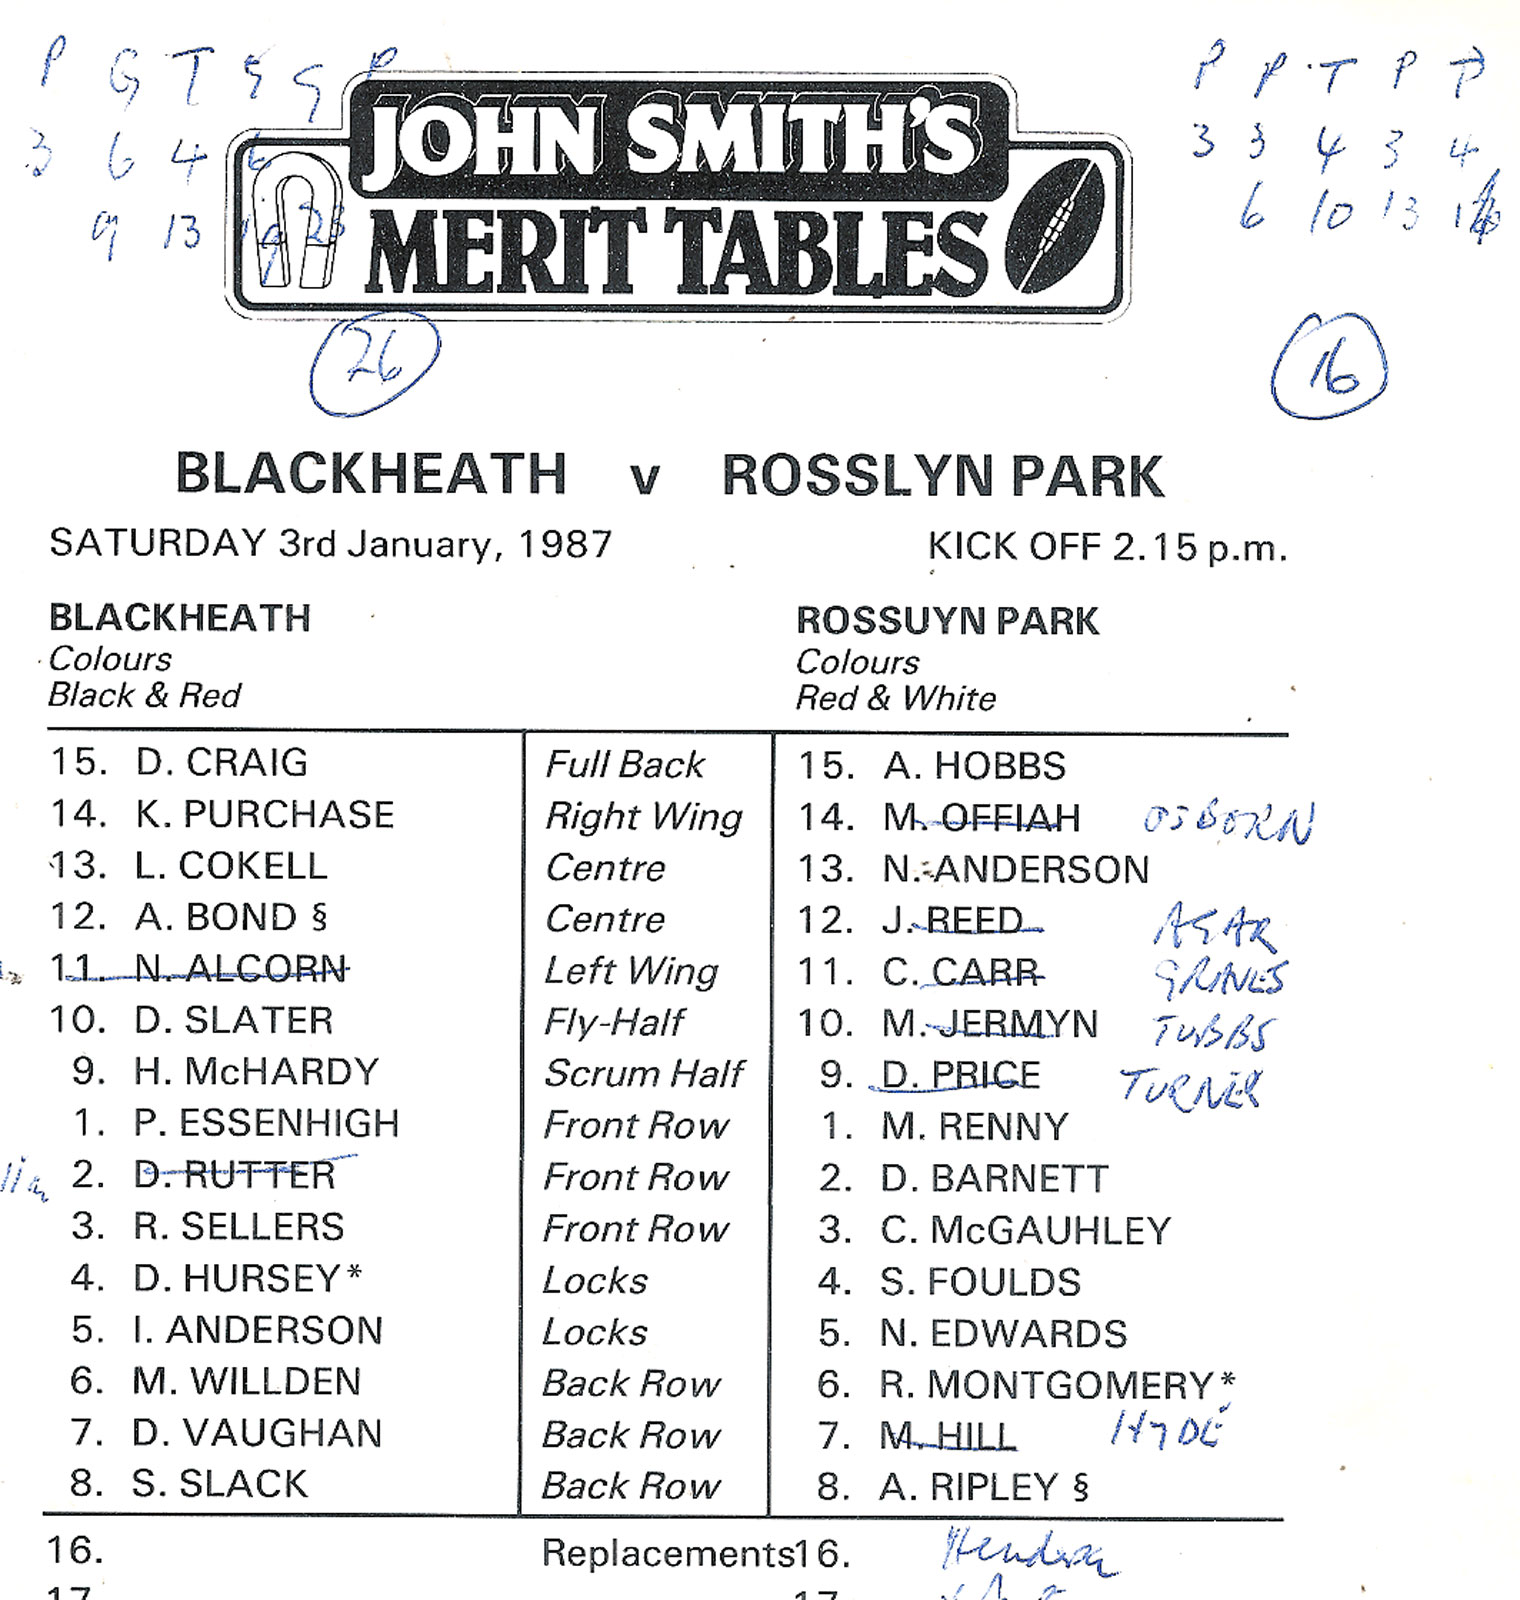 P G T G G P P P T P P
3 6 4 6 3 3 4 3 4
9 13 19 23 6 10 13 16
JOHN SMITH'S
MERIT TABLES
26 16
BLACKHEATH v ROSSLYN PARK
SATURDAY 3rd January, 1987 KICK OFF 2.15 p.m.
BLACKHEATH ROSSUYN PARK
Colours Colours
Black & Red Red & White
15. D. CRAIG Full Back 15. A. HOBBS
14. K. PURCHASE Right Wing 14. M. OFFIAH OSBORN
13. L. COKELL Centre 13. N. ANDERSON
12. A. BOND § Centre 12. J. REED AGAR
11. N. ALCORN Left Wing 11. C. CARR
10. D. SLATER Fly-Half 10. M. JERMYN TUBBS
9. H. McHARDY Scrum Half 9. D. PRICE TURNER
1. P. ESSENHIGH Front Row 1. M. RENNY
2. D. RUTTER Front Row 2. D. BARNETT
3. R. SELLERS Front Row 3. C. McGAUHLEY
4. D. HURSEY* Locks 4. S. FOULDS
5. I. ANDERSON Locks 5. N. EDWARDS
6. M. WILLDEN Back Row 6. R. MONTGOMERY*
7. D. VAUGHAN Back Row 7. M. HILL HYDE
8. S. SLACK Back Row 8. A. RIPLEY §
16. Replacements 16.
17. 17.